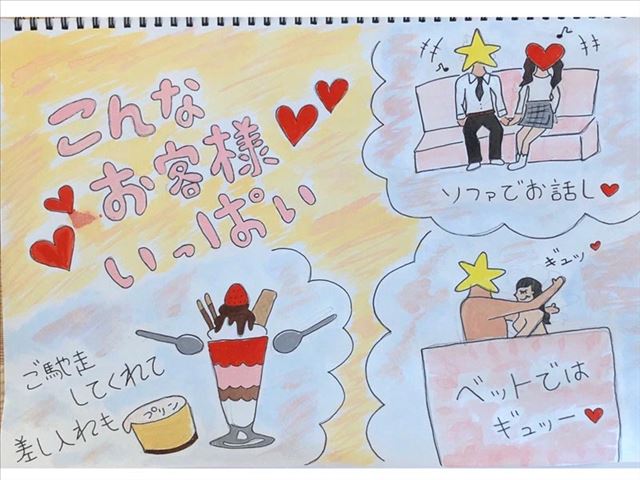 こんな
お客様
いっぱい
ソファでお話し
ギュッ
ベットでは
ギュッー
ご馳走
してくれて
差し入れも
プリン